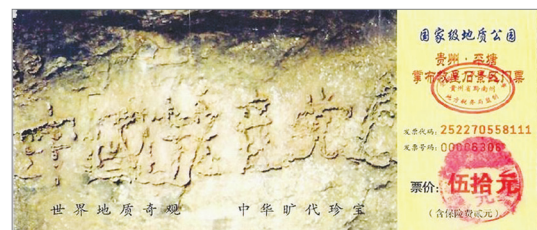 中国共产党
世界地质奇观 中华旷代珍宝
国家级地质公园
贵州·平塘
掌布改里石景区门票
贵州省黔南州
发票代码:252270558111
发票号码:00006306
票价:伍拾元
(含保险费贰元)